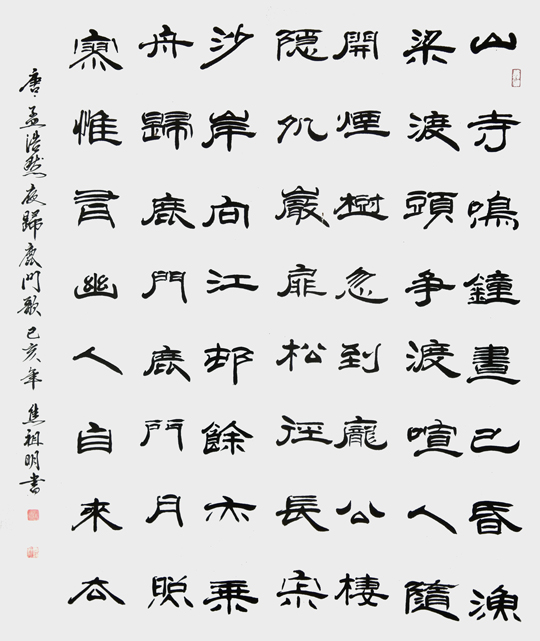 山寺鳴鐘晝已昏漁
梁渡頭爭渡喧人隨
開煙樹忽到龐公棲
隱処巖扉松徑長宋
沙岸向江邨餘亦乘
舟歸鹿門鹿門月照
寥惟有幽人自來去
唐·孟浩然夜歸鹿門歌己亥年焦祖明書